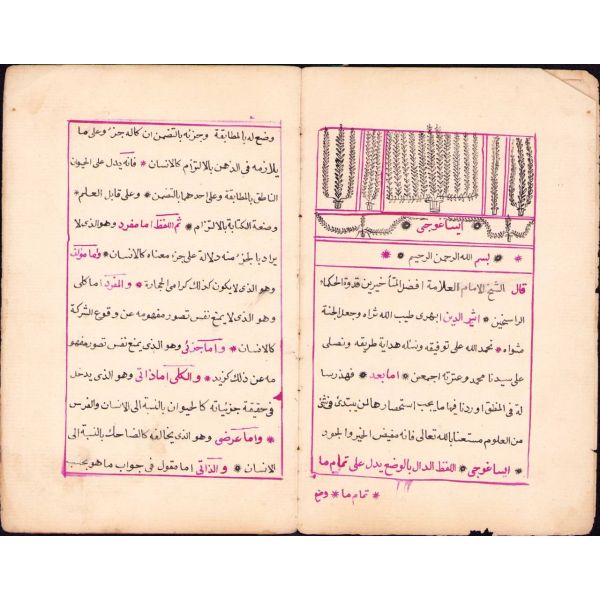 ايساغوجى
بسم الله الرحمن الرحيم
قال الشيخ الامام العلامة افضل المتأخيرين قدوة الحكماء
الراسخين اثير الدين ابهرى طيب الله ثراه وجعل الجنة
مثواه نحمد الله على توفيقه ونسئله هداية طريقه ونصلى
على سيدنا محمد وعترته اجمعين اما بعد فهذه رسا
لة فى المنطق اوردنا فيها ما يجب استحضارها لمن يبتدئ فى شئ
من العلوم مستعينا بالله تعالى فانه مفيض الخير والجود
ايساغوجى اللفظ الدال بالوضع يدل على تمام ما
تمام ما وضع
وضع له بالمطابقة وجزئه بالتضمن ان كان له جزء وعلى ما
يلازمه فى الذهن بالالتزام كالانسان فانه يدل على الحيوان
الناطق بالمطابقة وعلى احدهما بالتضمن وعلى قابل العلم
وصنعة الكتابة بالالتزام ثم اللفظ اما مفرد وهو الذى لا
يراد بالجزء منه دلالة على جزء معناه كالانسان واما مؤلف
وهو الذى لا يكون كذلك كرامى الحجارة والمفرد اما كلى
وهو الذى لا يمنع نفس تصور مفهومه عن وقوع الشركة
كالانسان واما جزئى وهو الذى يمنع نفس تصور مفهو
مه عن ذلك كزيد والكلى اما ذاتى وهو الذى يدخل
فى حقيقة جزئياته كالحيوان بالنسبة الى الانسان والفرس
واما عرضى وهو الذى يخالفه كالضاحك بالنسبة الى
الانسان والذاتى اما مقول فى جواب ما هو بحسب